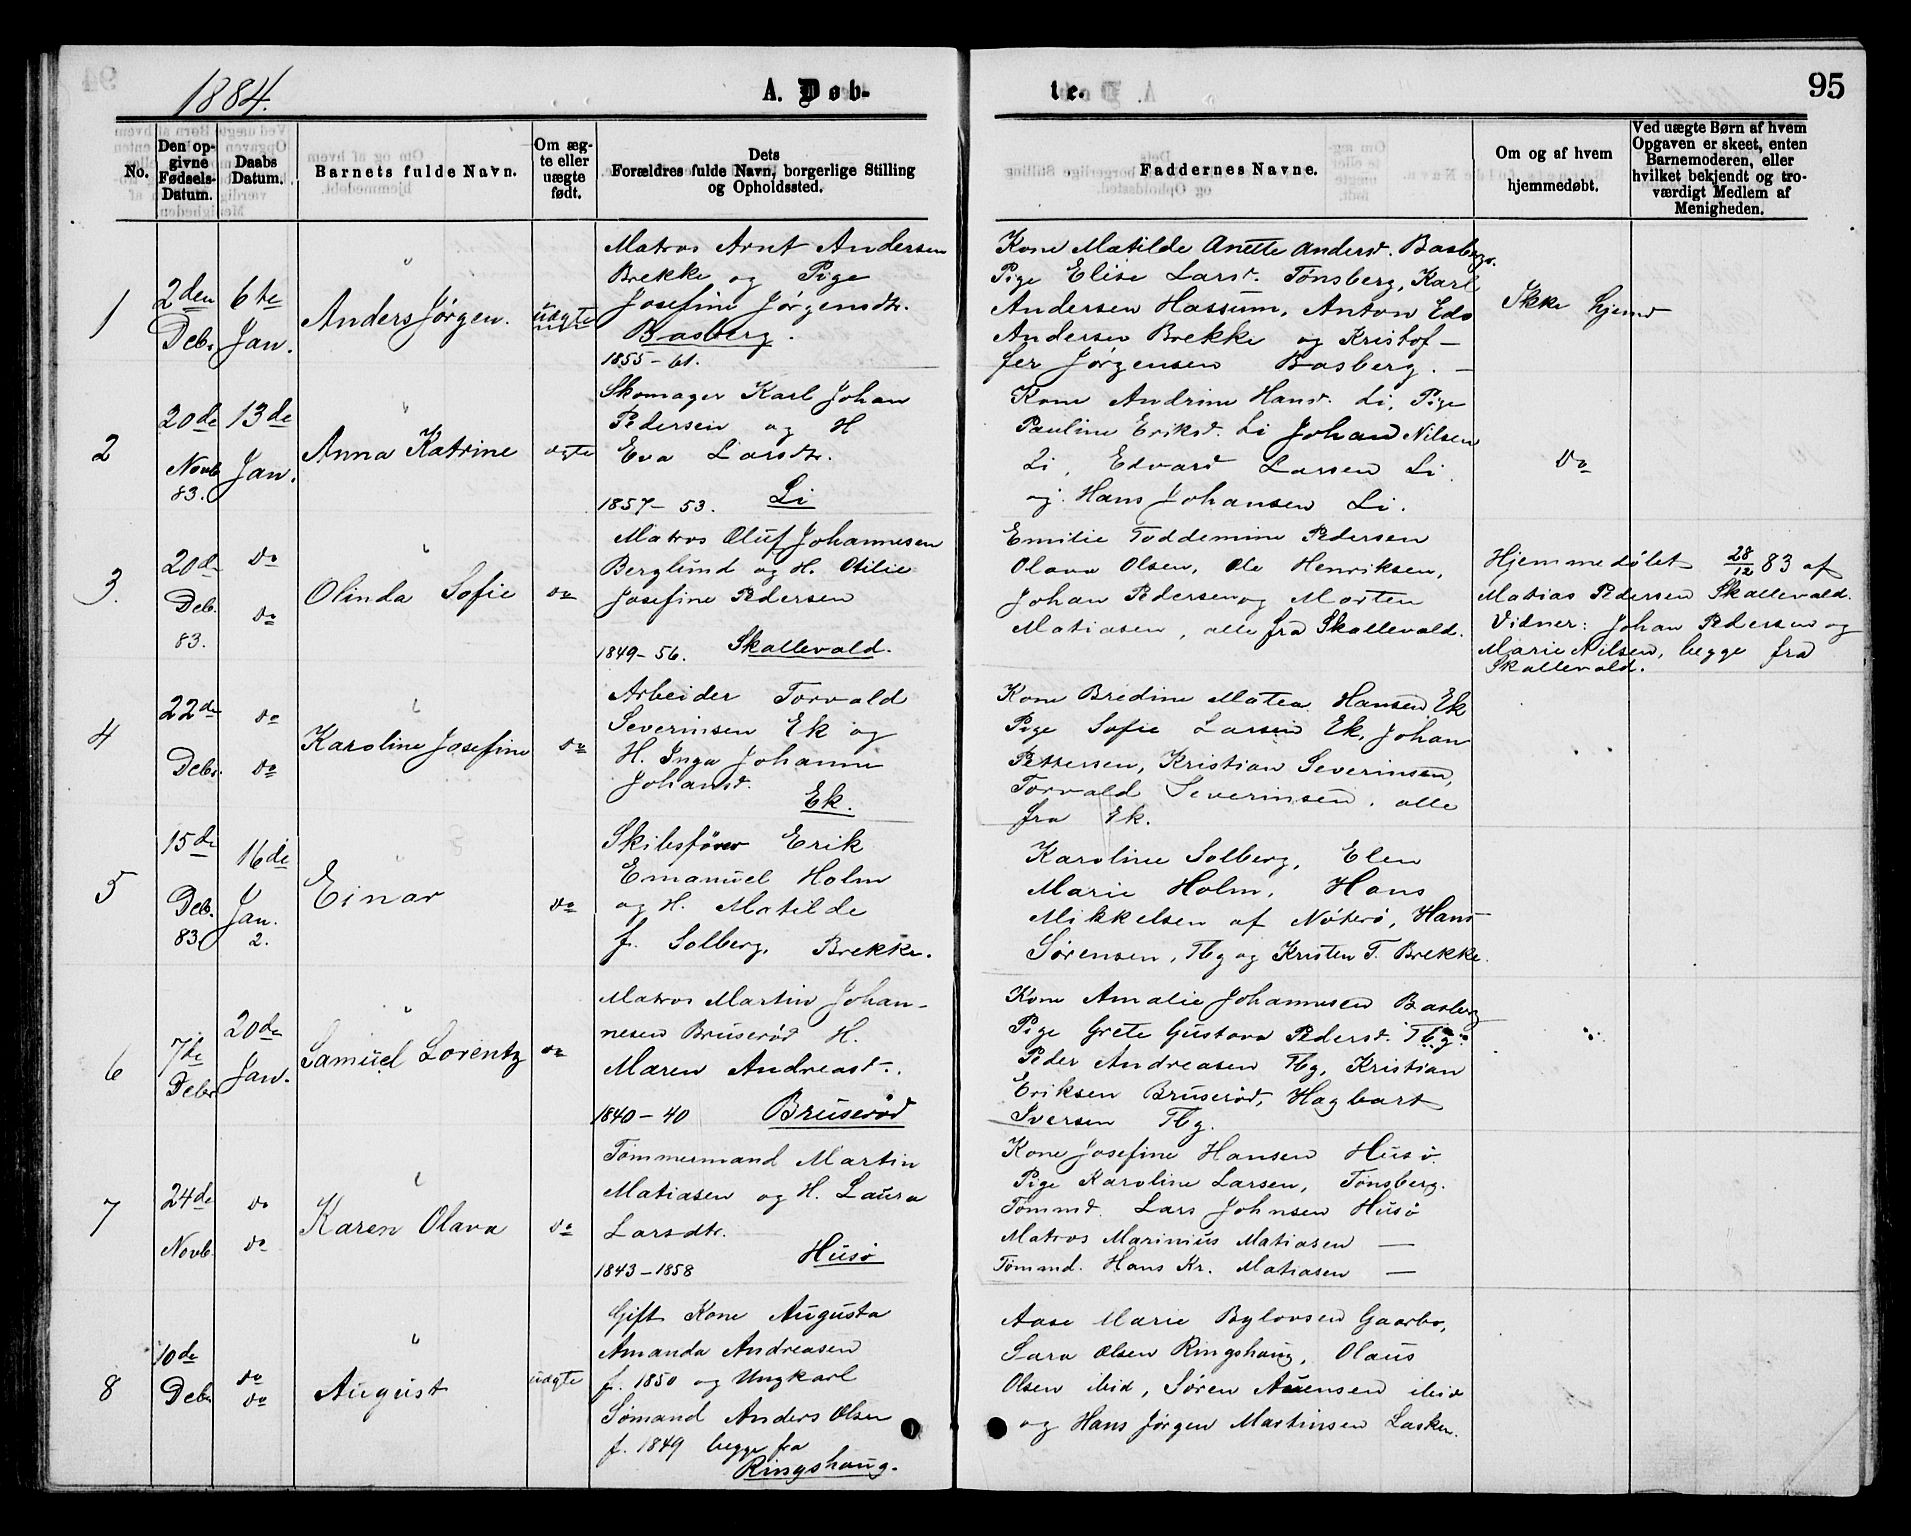 1884.
A. Døb-
te.
95
No.
Den op-
givne
Fødsels-
Datum.
Daabs
Datum.
Barnets fulde Navn.
Om æg-
te eller
uægte
født.
Dets
Forældres fulde Navn, borgerlige Stilling
og Opholdssted.
Faddernes Navne.
Om og af hvem
hjemmedøbt.
Ved uægte Børn af hvem
Opgaven er skeet, enten
Barnemoderen, eller
hvilket bekjendt og tro-
værdigt Medlem af
Menigheden.
1
2den
Debr.
6te
Jan.
Anders Jørgen.
uægte
Matros Arnt Andersen
Brekke og Pige
Josefine Jørgensdtr.
Basberg.
1855-61.
Kone Matilde Anette Andersd. Basberg.
Pige Elise Larsd. Tønsberg, Karl
Andersen Hassum, Anton Edv
Andersen Brekke og Kristof-
fer Jørgensen Basberg. -
Ikke hjemd
2
20de
Novb.
83.
13de
Jan.
Anna Katrine
ægte
Skomager Karl Johan
Pedersen og H
Eva Larsdtr.
1857-53. Li
Kone Andrine Hansd. Li, Pige
Pauline Eriksd. Li Johan Nilsen
Li, Edvard Larsen Li
og Hans Johansen Li.
Do
3.
20de
Deb.
83.
do
do
Olinda Sofie
do
Matros Oluf Johannesen
Berglund og H. Otilie
Josefine Pedersen
1849-56. Skallevald.
Emilie Toddemine Pedersen
Olava Olsen, Ole Henriksen,
Johan Pedersen og Morten
Matiasen, alle fra Skallevald.
Hjemmedøbt 28/12 83 af
Matias Pedersen Skallevald.
Vidner: Johan Pedersen og
Marie Nilsen, begge fra
Skallevald.
4
22de
Debr.
do
do
Karoline Josefine
do
Arbeider Torvald
Severinsen Ek og
H. Inga Johanne
Johansd.
Ek.
Kone Bredine Matea Hansen Ek
Pige Sofie Larsen Ek, Johan
Pettersen, Kristian Severinsen,
Torvald Severinsen, alle
fra Ek.
5
15de
Deb.
83
16de
Jan.
2.
Einar
do
Skibsfører Erik
Emanuel Holm
og H. Matilde
f. Solberg, Brekke.
Karoline Solberg, Elen
Marie Holm, Hans
Mikkelsen af Nøterø, Hans
Sørensen, Tbg og Kristen T. Brekke.
6
7de
Debr
20de
Jan.
Samuel Lorentz
do
Matros Martin Johan-
nesen Bruserød H.
Maren Andreasd.
1840-40 Bruserød
Kone Amalie Johannesen Basberg
Pige Grete Gustava Pedersd. Tbg.
Peder Andreasen Tbg, Kristian
Eriksen Bruserød, Hagbart
Iversen Tbg.
7
24de
Novb.
do
do
Karen Olava
do
Tømmermand Martin
Matiasen og H. Laura
Larsdtr.
Husø
1843-1858
Kone Josefine Hansen Husø.
Pige Karoline Larsen, Tønsberg.
Tømmd. Lars Johnsen Husø
Matros Marinius Matiasen —
Tømmd. Hans Kr. Matiasen —
8
10de
Deb.
do
do
August
uægte
Gift Kone Augusta
Amanda Andreasen
f. 1850 og Ungkarl
Sømand Anders Olsen
f. 1849 begge fra
Ringshaug.
Aase Marie Gaarbo,
Sara Olsen Ringshaug, Olaus
Olsen ibid, Søren ibid
og Hans Jørgen Martinsen